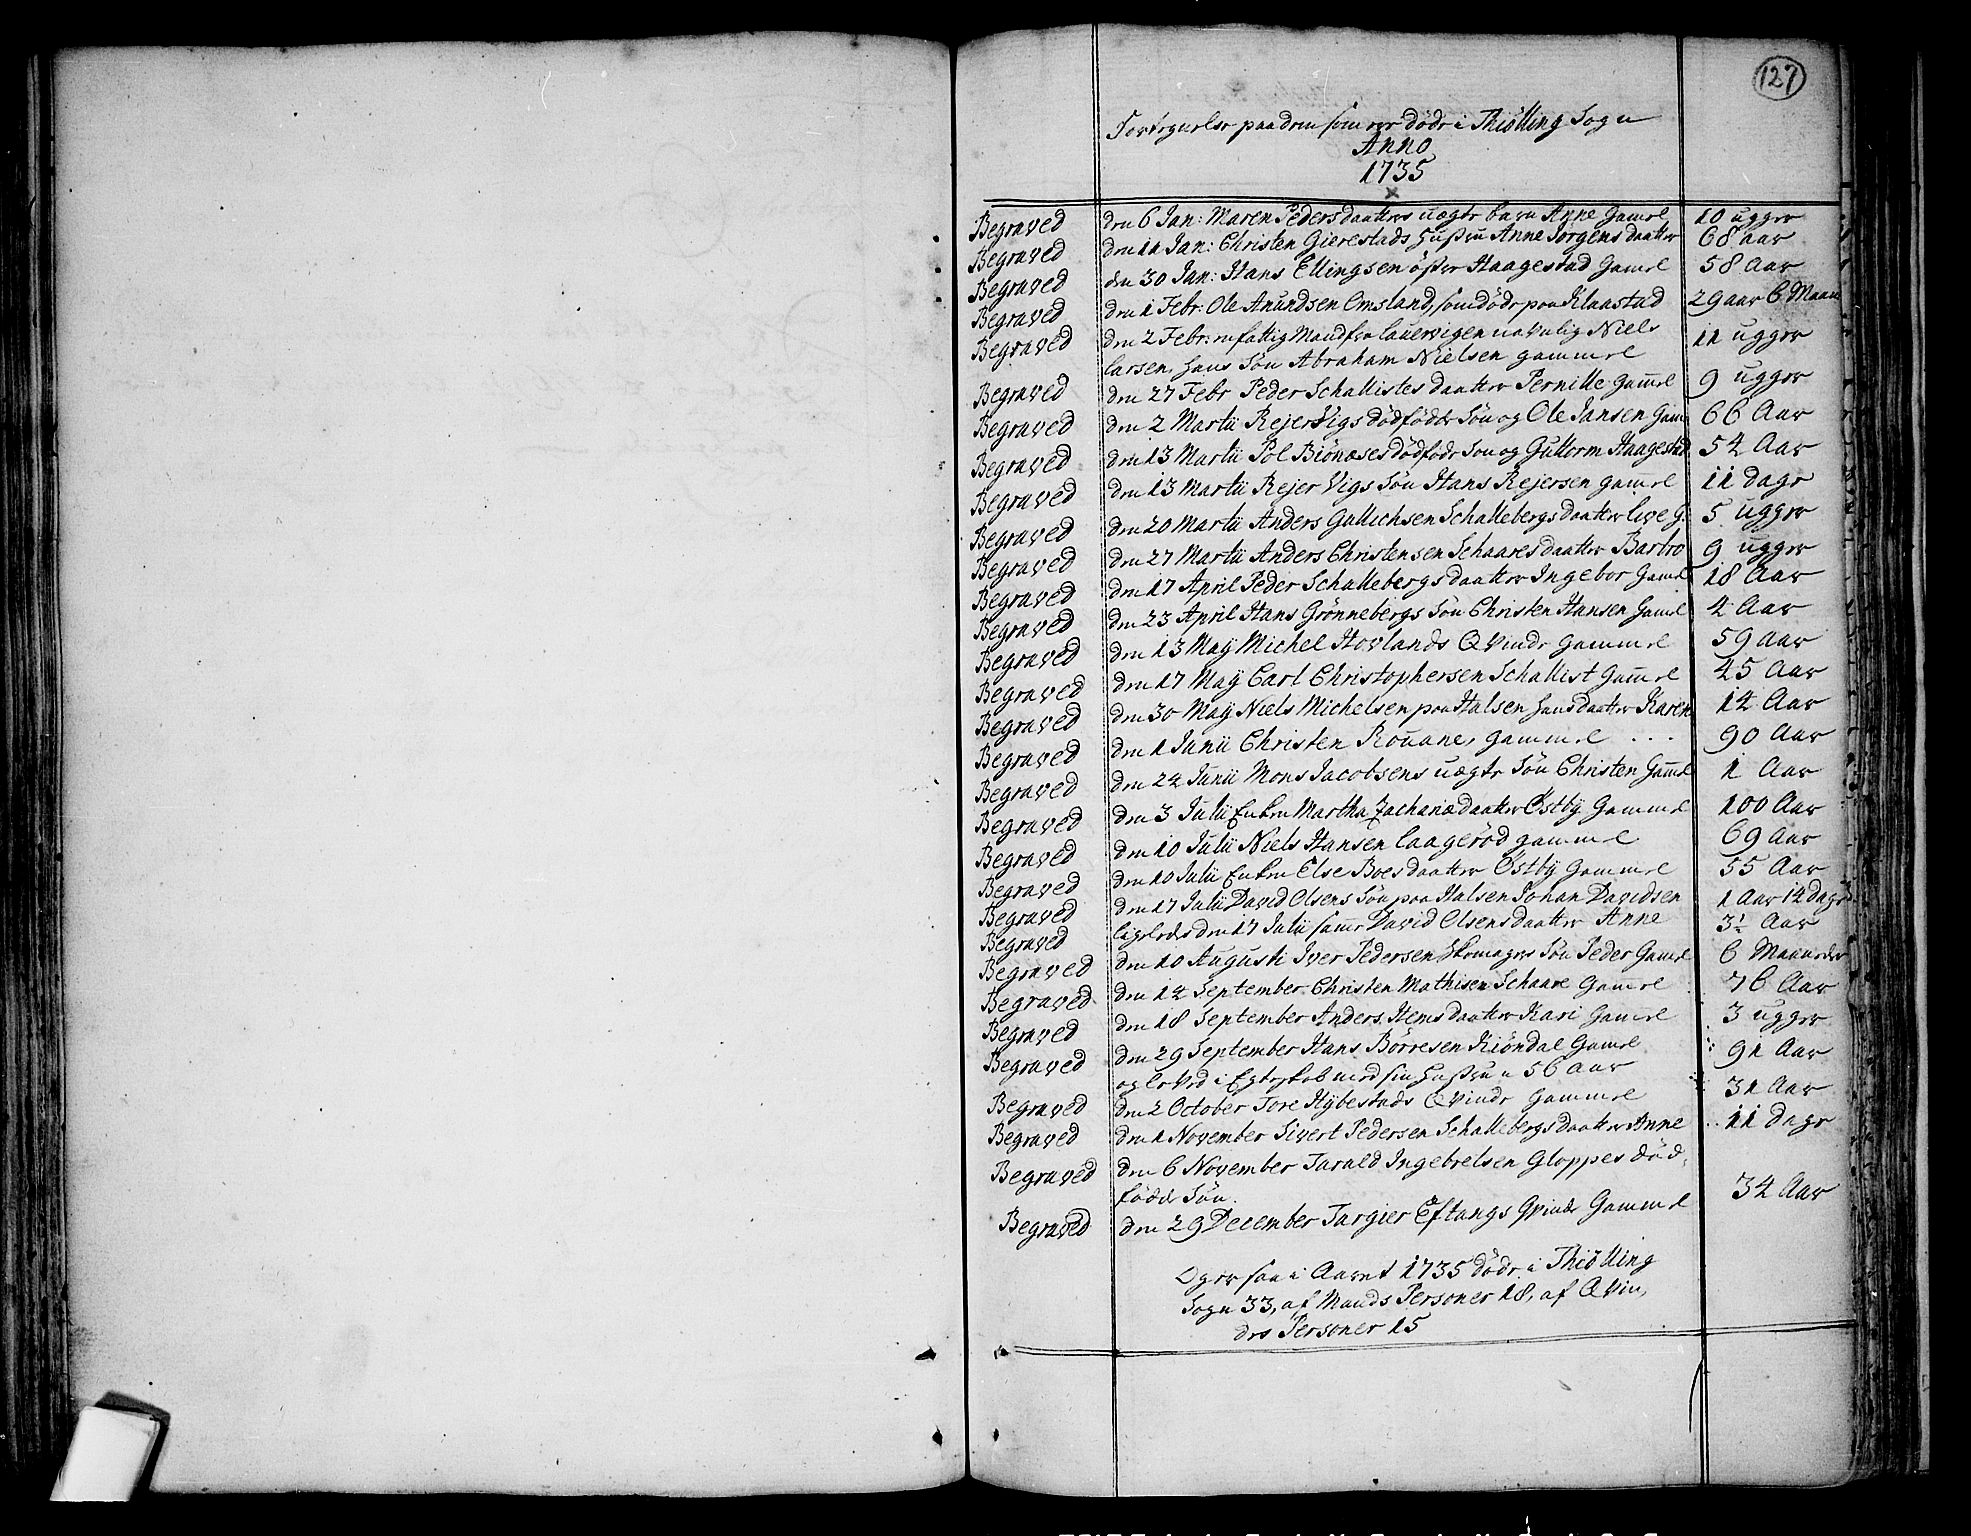 127
Fortegnelse paa dem som ere döde i Thiölling Sogn
Anno
1735
Begraved den 6 Jan: Maren Pedersdaatters uægte barn Anne Gamel 10 ugger
Begraved den 11 Jan: Christen Gierestads Hustru Anne Jorgensdaatter 68 aar
Begraved den 30 Jan: Hans Ellingsen öster Haagestad Gamel 58 Aar
Begraved den 1 Febr: Ole Anundsen Omsland, som döde paa Klaastad 29 aar 6 Maan
Begraved den 2 Febr: en fattig Mand fra Lauervigen navnlig Niels 11 ugger
Larsen, hans Sön Abraham Nielsen gammel
Begraved den 27 Febr Peder Schallistes daatter Pernille Gamel 9 ugger
Begraved den 2 Martii Rejer Vigs dödfödde Sön og Ole Jansen Gam 66 Aar
Begraved den 13 Martii Pol Biönæses dödföde Son og Guttorm Haagestad 54 Aar
Begraved den 13 Martii Rejer Vigs Sön Hans Rejersen gamel 11 dage
Begraved den 20 Martii Anders Gullichsen Schallebergs daatter Live G: 5 ugger
Begraved den 27 Martii Anders Christensen Schaares daatter Barbro 9 ugger
Begraved den 17 April Peder Schallebergs daatter Ingebor Gamel 18 Aar
Begraved den 23 April Hans Grönnebergs Sön Christen Hansen Gamel 4 Aar
Begraved den 13 Maÿ Michel Hovlands Qvinde Gammel 59 aar
Begraved den 17 Maÿ Carl Christophersen Schallist Gamel 45 Aar
Begraved den 30 Maÿ Niels Michelsen paa Halsen hans daatter Karen 14 Aar
Begraved den 1 Junii Christen Rouane, gammel . . . 90 Aar
Begraved den 24 Junii Mons Jacobsens uægte Sön Christen Gamel 1 Aar
Begraved den 3 Julii Enken Martha Zachariædaatter Östbÿ Gammel 100 Aar
Begraved den 10 Julii Niels Hansen Laageröd gammel 69 Aar
Begraved den 10 Julii Enken Else Boesdaatter Östbÿ Gammel 55 Aar
Begraved den 17 Julii David Olsens Sön paa Halsen Johan Davidsen 1 Aar 14 Dage
Begraved ligeledes den 17 Julii samme David Olsens daatter Anne 3½ Aar
Begraved den 10 Augusti Iver Pedersen Skomagers Sön Peder Gamel 6 Maaneder
Begraved den 14 September Christen Mathisen Schaare Gamel 76 Aar
Begraved den 18 September Anders Hems daatter Kari Gamel 3 ugger
Begraved den 29 September Hans Börresen Kiöndal Gamel 91 Aar
og leved i Egteskab med sin Hustru 56 Aar
Begraved den 2 October Tore Hÿbestads Qvinde Gammel 31 Aar
Begraved den 1 November Sivert Pedersen Schallebergs daatter Anne 11 dage
Begraved den 6 November Tarald Ingebretsen Gloppes död-
födde Sön.
Begraved den 29 December Targier Eftangs Qvinde Gammel 34 Aar
Og er saa i Aaret 1735 döde i Thiölling
Sogn 33, af Mands Personer 18, af Qvin,
des Personer 15